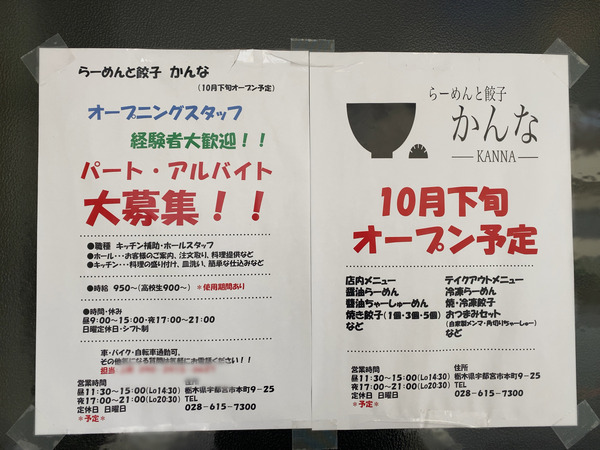 らーめんと餃子 かんな
(10月下旬オープン予定)
オープニングスタッフ
経験者大歓迎!!
パート・アルバイト
大募集!!
●職種 キッチン補助・ホールスタッフ
●ホール・・・お客様のご案内、注文取り、料理提供など
●キッチン・・・料理の盛り付け、皿洗い、簡単な仕込みなど
●時給 950~(高校生900~) *使用期間あり
●時間・休み
昼9:00~15:00・夜17:00~21:00
日曜定休日・シフト制
車・バイク・自転車通勤可。
その他気になる質問は気軽にお電話ください!!
担当
営業時間
昼11:30~15:00(Lo14:30)
夜17:00~21:00(Lo20:30)
定休日 日曜日
*予定*
住所
栃木県宇都宮市本町9-25
TEL
028-615-7300
らーめんと餃子
かんな
KANNA
10月下旬
オープン予定
店内メニュー
醤油らーめん
醤油ちゃーしゅーめん
焼き餃子(1個・3個・5個)
など
テイクアウトメニュー
冷凍らーめん
焼・冷凍餃子
おつまみセット
(自家製メンマ・角切りちゃーしゅー)
など
営業時間
昼11:30~15:00(Lo14:30)
夜17:00~21:00(Lo20:30)
定休日 日曜日
*予定*
住所
栃木県宇都宮市本町9-25
TEL
028-615-7300